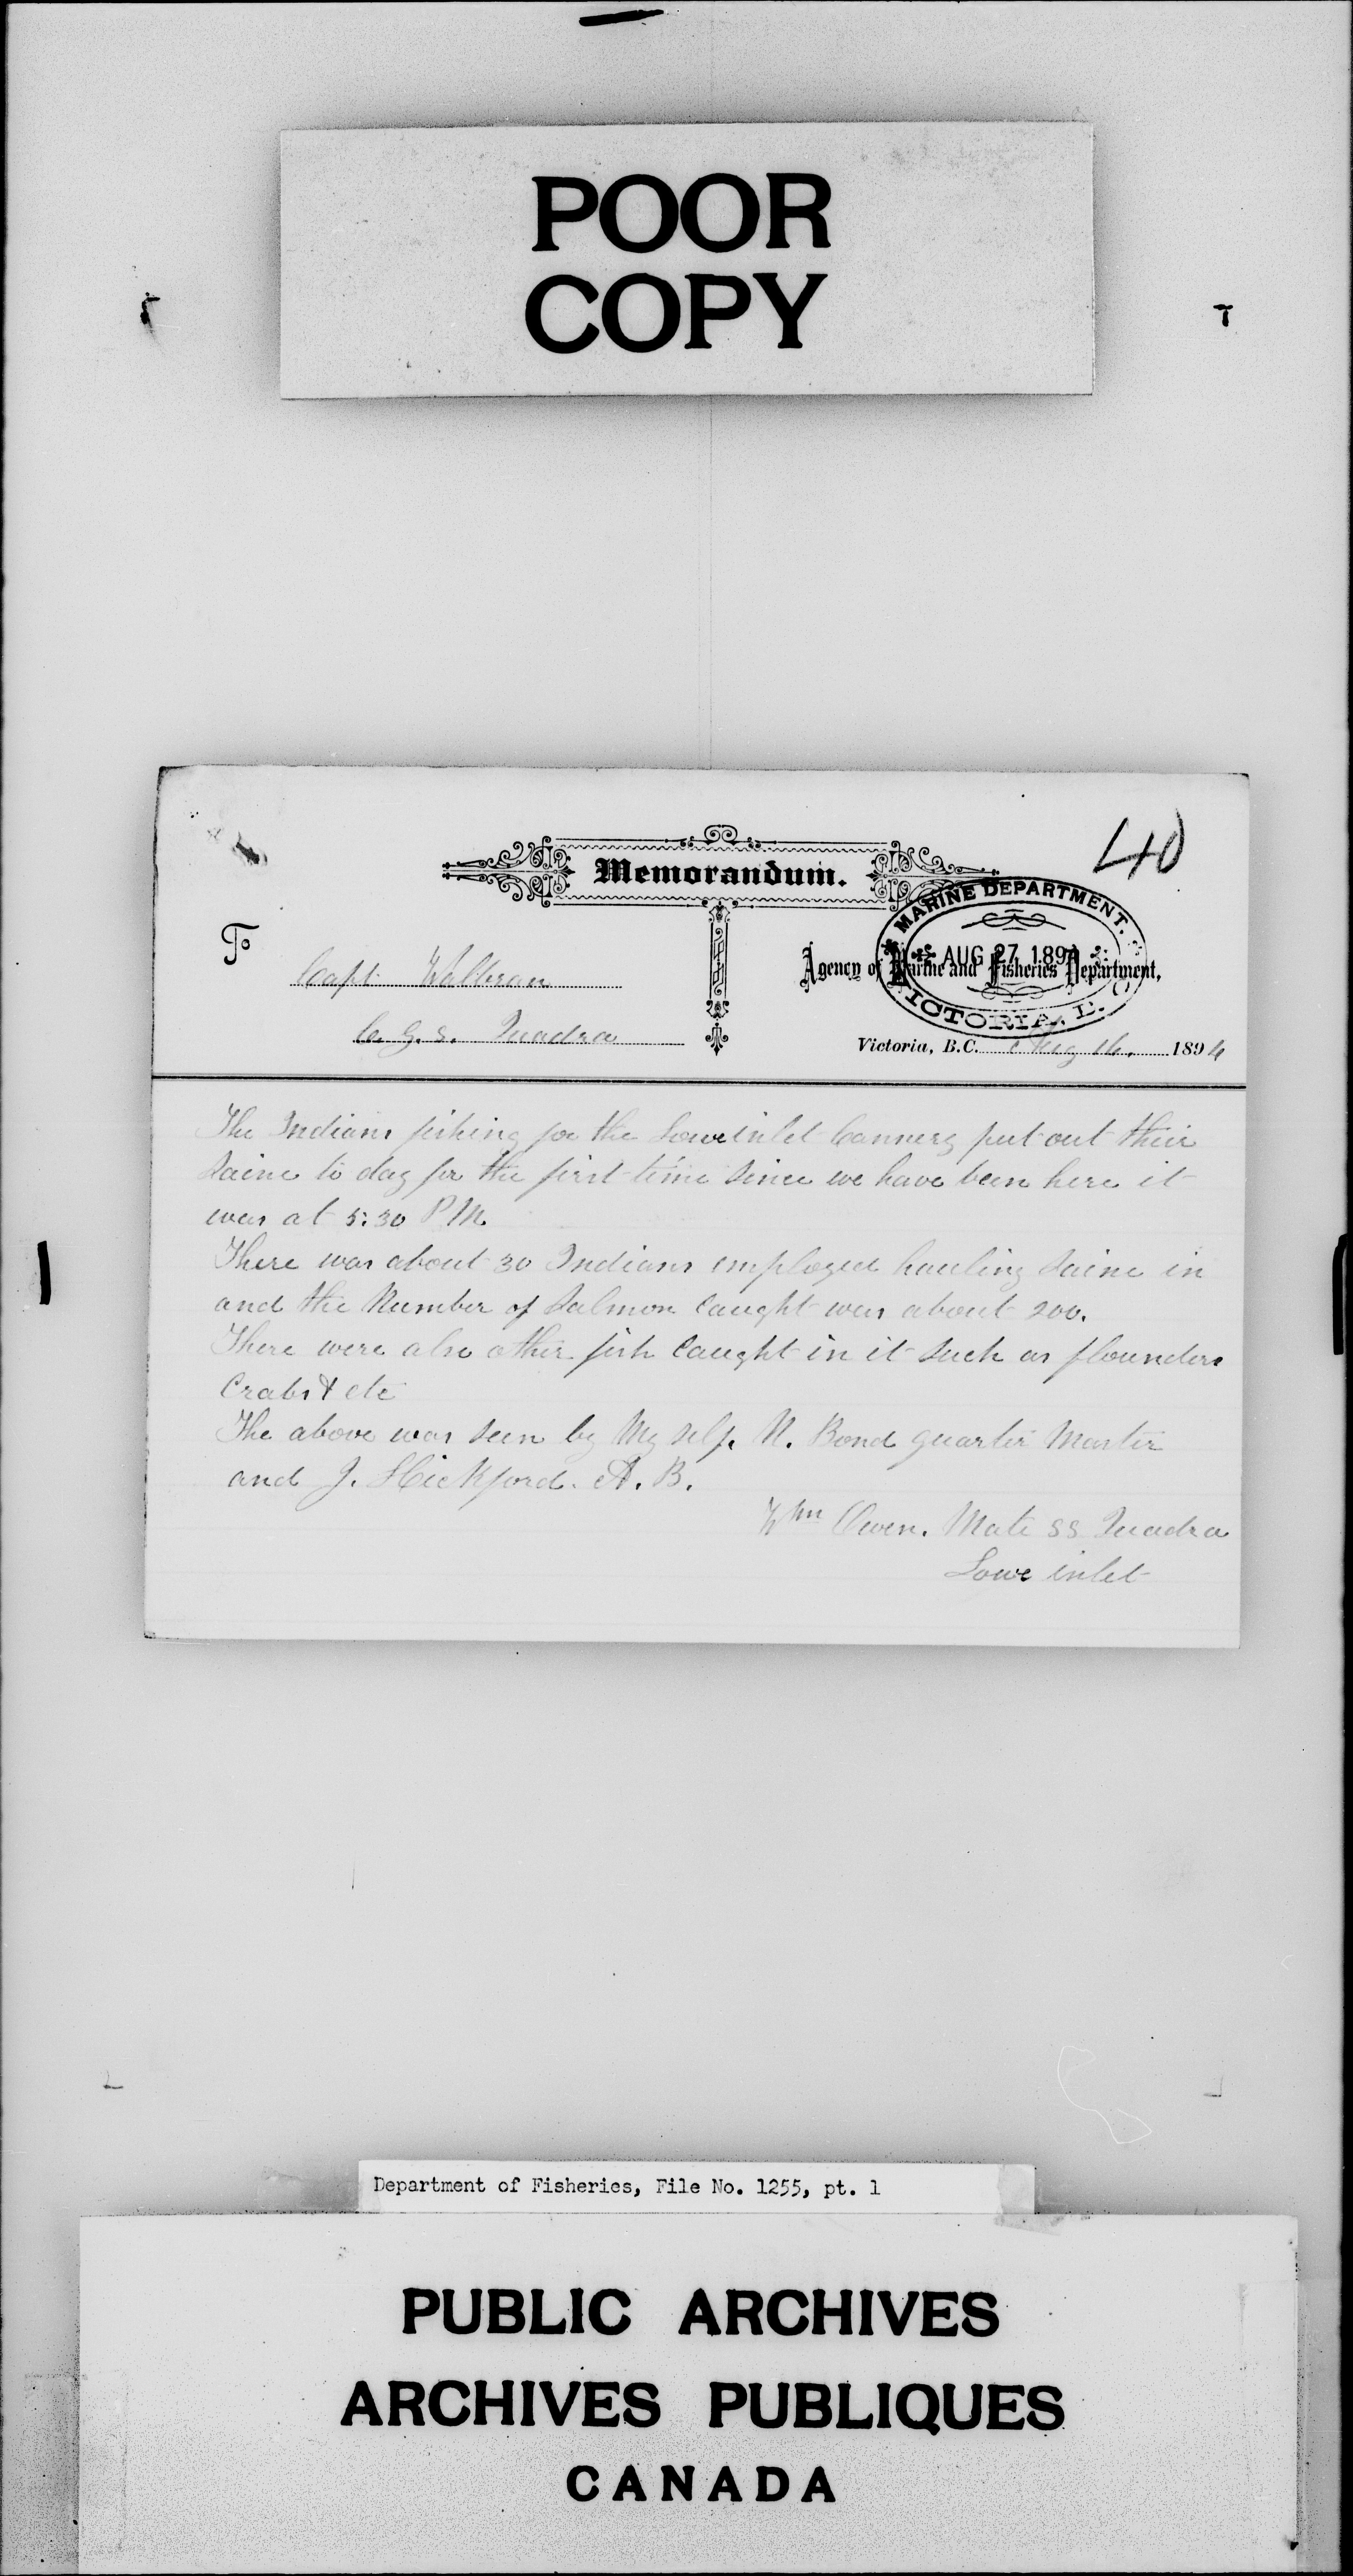 POOR
COPY
40
Memorandum.
MARINE DEPARTMENT.
AUG 27 1894
VICTORIA, B.C.
To
Capt Walbran
C. G. S. Quadra
Agency of Marine and Fisheries Department,
Victoria, B.C. Aug 16. 1894
The Indians fishing for the Lowe inlet Cannery put out their
Saine to day for the first time since we have been here it
was at 5:30 P M.
There was about 30 Indians employed hauling Saine in
and the Number of Salmon Caught was about 200.
There were also other fish Caught in it Such as flounders
Crabs & etc
The above was seen by My self. N. Bond quarter Master
and J. Hickford. A. B.
Wm Owen. Mate SS Quadra
Lowe inlet
Department of Fisheries, File No. 1255, pt. 1
PUBLIC ARCHIVES
ARCHIVES PUBLIQUES
CANADA